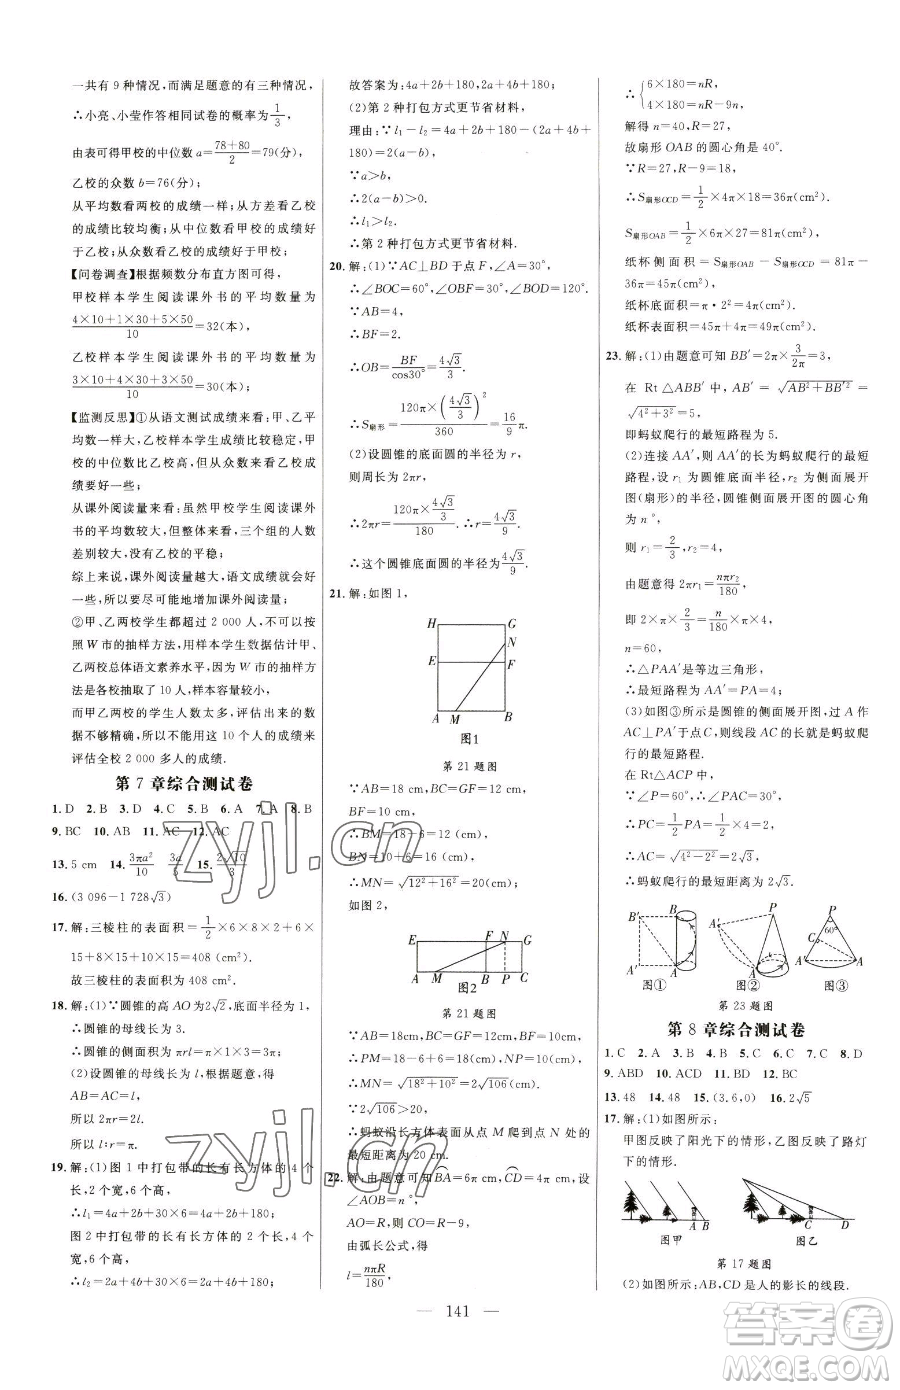 一共有 9 种情况，而满足题意的有三种情况，
∴小亮、小莹作答相同试卷的概率为1/3
由表可得甲校的中位数 a=(78+80)/2=79(分)；
乙校的众数 b=76(分)；
从平均数看两校的成绩一样；从方差看乙校的成绩比较均衡；从中位数看甲校的成绩好于乙校；从众数看乙校的成绩好于甲校.
【问卷调查】根据频数分布直方图可得，
甲校样本学生阅读课外书的平均数量为
(4×10+1×30+5×50)/10=32(本)，
乙校样本学生阅读课外书的平均数量为
(3×10+4×30+3×50)/10=30(本)，
【监测反思】①从语文测试成绩来看：甲、乙平均数一样大，乙校样本学生成绩比较稳定，甲校的中位数比乙校高，但从众数来看乙校成绩要好一些；
从课外阅读量来看：虽然甲校学生阅读课外书的平均数较大，但整体来看，三个组的人数差别较大，没有乙校的平稳；
综上来说，课外阅读量越大，语文成绩就会好一些，所以要尽可能地增加课外阅读量；
②甲、乙两校学生都超过 2 000 人，不可以按照 W 市的抽样方法，用样本学生数据估计甲、乙两校总体语文素养水平，因为 W 市的抽样方法是各校抽取了 10 人，样本容量较小，
而甲乙两校的学生人数太多，评估出来的数据不够精确，所以不能用这 10 个人的成绩来评估全校 2 000 多人的成绩.
第 7 章综合测试卷
1. D 2. B 3. D 4. C 5. B 6. A 7. A 8. B
9. BC 10. AB 11. AC 12. AC
13. 5 cm 14. 3πa²/10 3a/5 15. 2√10/3
16. (3 096−1 728√3)
17. 解：三棱柱的表面积=1/2×6×8×2+6×
15+8×15+10×15=408(cm²).
故三棱柱的表面积为 408 cm².
18. 解：(1)∵圆锥的高 AO为2√2，底面半径为 1，
∴圆锥的母线长为 3.
∴圆锥的侧面积为 πrl=π×1×3=3π.
(2)设圆锥的母线长为 l，根据题意，得
AB=AC=l.
所以 2πr=2l.
所以 l：r=π.
19. 解：(1)图 1 中打包带的长有长方体的 4 个长，2 个宽，6 个高，
∴l₁=4a+2b+30×6=4a+2b+180，
图 2 中打包带的长有长方体的 2 个长，4 个宽，6 个高，
∴l₂=2a+4b+30×6=2a+4b+180，
故答案为：4a+2b+180，2a+4b+180.
(2)第 2 种打包方式更节省材料，
理由：∵l₁−l₂=4a+2b+180−(2a+4b+
180)=2(a−b)，
∵a>b，
∴2(a−b)>0，
∴l₁>l₂.
∴第 2 种打包方式更节省材料.
20. 解：(1)∵AC⊥BD 于点 F，∠A=30°，
∴∠BOC=60°，∠OBF=30°，∠BOD=120°.
∵AB=4，
∴BF=2.
∴OB=BF/cos30°=4√3/3.
∴S扇形=(120π×(4√3/3)²)/360=16/9π.
(2)设圆锥的底面圆的半径为 r，
则周长为 2πr，
∴2πr=(120π×4√3/3)/180.∴r=4√3/9.
∴这个圆锥底面圆的半径为4√3/9.
21. 解：如图 1，
H G
N
E F
A M B
图1
第 21 题图
∵AB=18 cm，BC=GF=12 cm，
BF=10 cm，
∴BM=18−6=12(cm)，
BN=10+6=16(cm)，
∴MN=√(12²+16²)=20(cm)；
如图 2，
E F N G
A M B P C
图2
第 21 题图
∵AB=18cm，BC=GF=12cm，BF=10cm，
∴PM=18−6+6=18(cm)，NP=10(cm)，
∴MN=√(18²+10²)=2√106(cm).
∵20<2√106，
∴蚂蚁沿长方体表面从点 M 爬到点 N 处的最短距离为 20 cm.
22. 解：由题意可知BA=6π cm，CD=4π cm，设∠AOB=n°，
AO=R，则 CO=R−9，
由弧长公式，得
l=nπR/180，
∴{6×180=nR，
4×180=nR−9n，
解得 n=40，R=27，
故扇形 OAB 的圆心角是 40°.
∵R=27，R−9=18，
∴S扇形OCD=1/2×4π×18=36π(cm²)
S扇形OAB=1/2×6π×27=81π(cm²)，
纸杯侧面积=S扇形OAB−S扇形OCD=81π−
36π=45π(cm²)，
纸杯底面积=π·2²=4π(cm²)
纸杯表面积=45π+4π=49π(cm²).
23. 解：(1)由题意可知 BB′=2π×3/2π=3，
在 Rt△ABB′中，AB′=√(AB²+BB′²)=
√(4²+3²)=5，
即蚂蚁爬行的最短路程为 5.
(2)连接 AA′，则 AA′的长为蚂蚁爬行的最短路程，设 r₁为圆锥底面半径，r₂为侧面展开图(扇形)的半径，圆锥侧面展开图的圆心角为 n°，
则 r₁=2/3，r₂=4，
由题意得 2πr₁=nπr₂/180，
即 2×π×2/3=n/180×π×4，
n=60，
∴△PAA′是等边三角形，
∴最短路程为 AA′=PA=4；
(3)如图③是圆锥的侧面展开图，过 A 作 AC⊥PA′于点 C，则线段 AC 的长就是蚂蚁爬行的最短路程.
在 Rt△ACP 中，
∵∠P=60°，
∴∠PAC=30°
∴PC=1/2PA=1/2×4=2，
∴AC=√(4²−2²)=2√3，
∴蚂蚁爬行的最短距离为 2√3.
B′ B A′ A 图①
P A′ A 图②
P 60° C A′ A 图③
第 23 题图
第 8 章综合测试卷
1. C 2. A 3. A 4. B 5. B 6. C 7. C 8. D
9. ABD 10. ACD 11. BD 12. BC
13. 48 14. 48 15. (3.6,0) 16. 2√5
17. 解：(1)如图所示：
甲图反映了阳光下的情形，乙图反映了路灯下的情形.
A B 图甲
C D 图乙
第 17 题图
(2)如图所示：AB，CD 是人的影长的线段.
— 141 —
zyjl.cn
zyjl.cn
答案圈
MXQE.COM